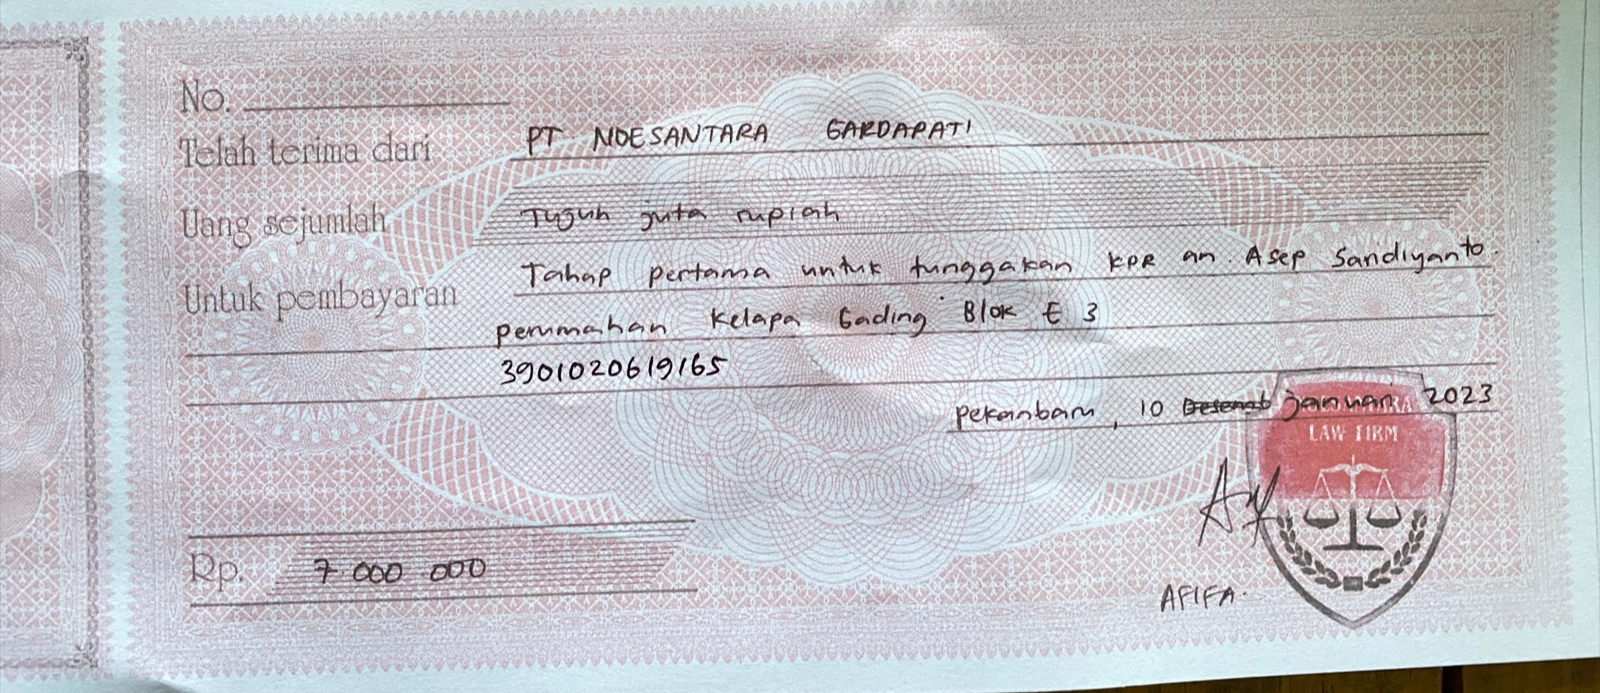 No.
Telah terima dari PT NOESANTARA GARDAPATI
Uang sejumlah Tujuh juta rupiah
Untuk pembayaran Tahap pertama untuk tunggakan KPR an. Asep Sandiyanto.
perumahan Kelapa Gading Blok E 3
3901020619165
pekanbaru, 10 Desemb januari 2023
LAW FIRM
Rp. 7.000 000
AFIFA.